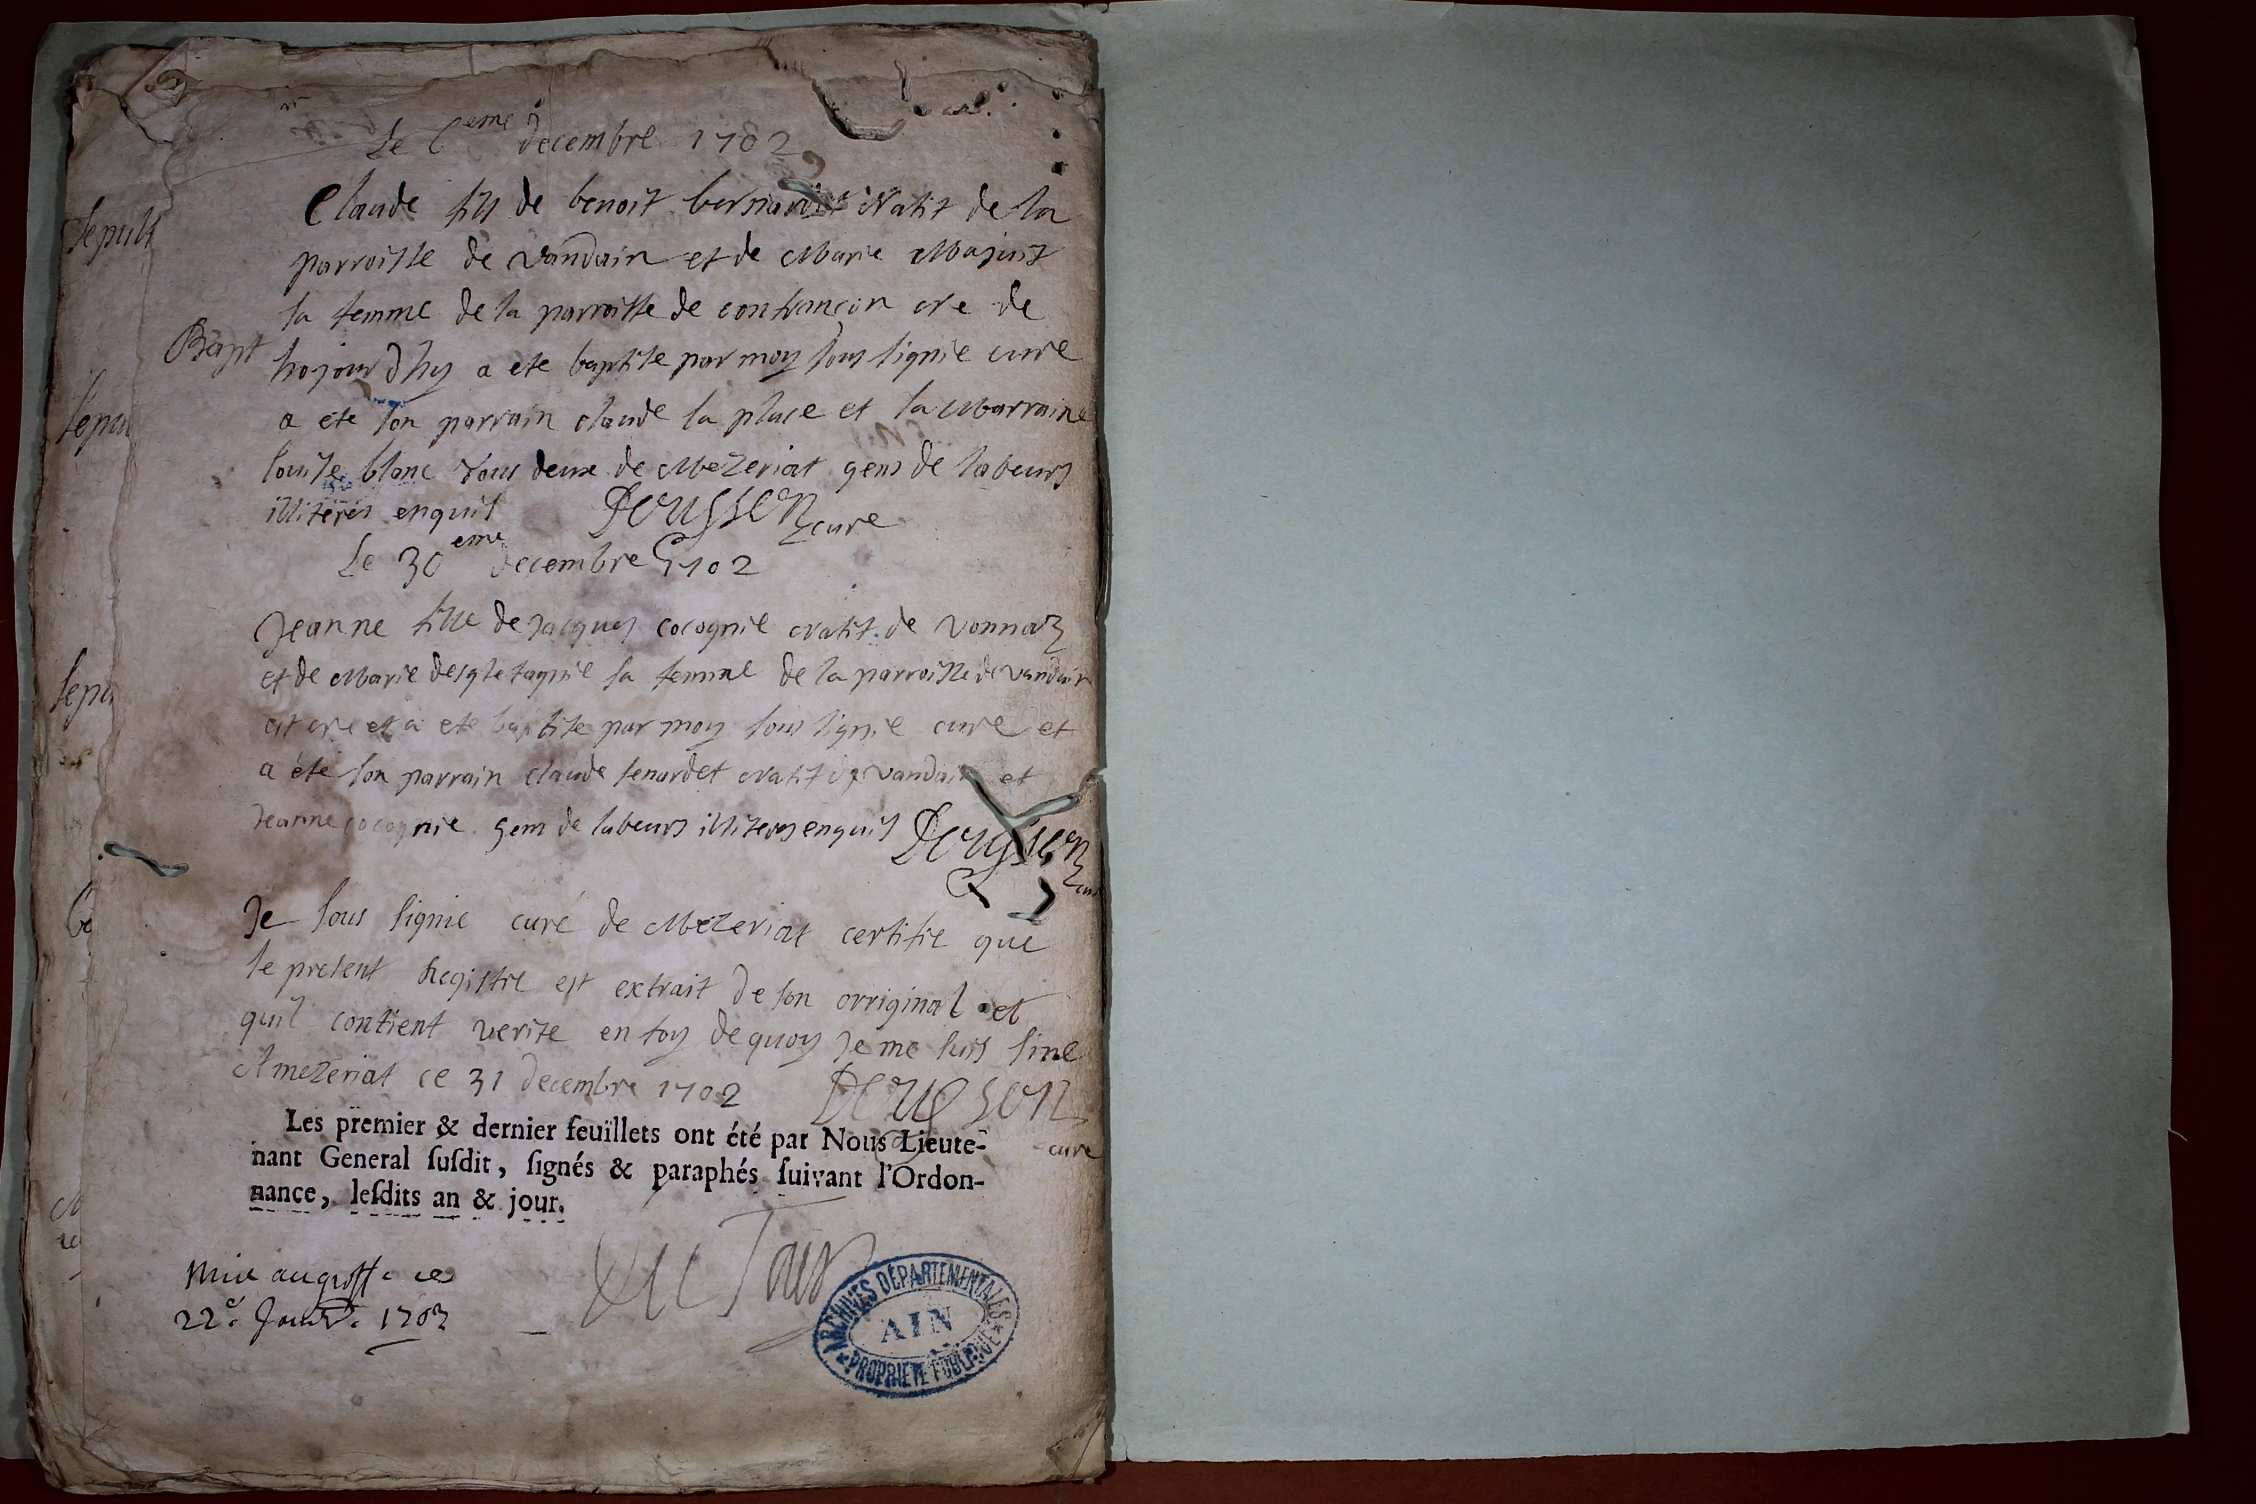 Le 6eme decembre 1702
Claude fils de benoit Natif de la
parroisse de vandain et de Marie
sa femme de la parroisse de confrançon nre de
Bapt
hojourdhuy a ete baptise par moy sous signie cure
a ete son parrain claude la place et la Marraine
louise blanc tous deux de Mezeriat gens de labeurs
illiterés enquis
cure
Le 30eme decembre 1702
Jeanne fille de Jacques cocognie natif de vonnaz
et de Marie sa femme de la parroisse de vandain
est nre et a ete baptise par moy sous signie cure et
a éte son parrain claude natif de vandain et
Jeanne cocognie gens de labeurs illiteres enquis
Je sous signie curé de Mezeriat certifie que
le present Registre est extrait de son orriginal et
quil contient verite en foy dequoy Je me suis sine
A mezeriat ce 31 decembre 1702
cure
Les premier & dernier feuillets ont été par Nous Lieute-
nant General ſuſdit, ſignés & paraphés ſuivant l'Ordon-
nance, leſdits an & jour.
Mise au greffe ce
22e 1703
Sepult
Sepu
Sepu
ARCHIVES DÉPARTEMENTALES
AIN
PROPRIÉTÉ PUBLIQUE